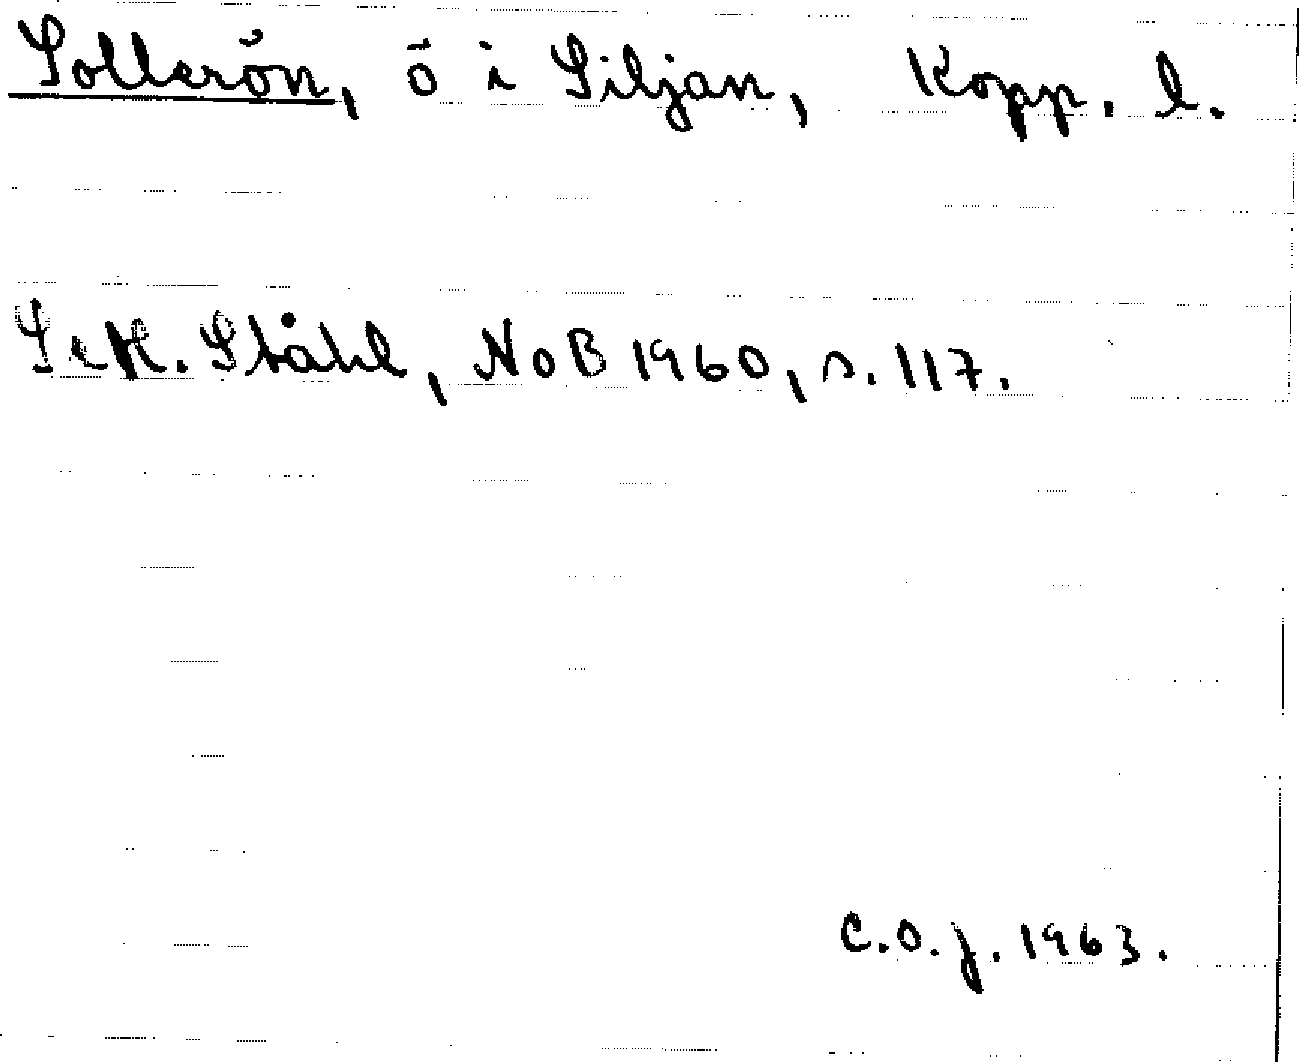 Sollerön, ö i Siljan, Kopp. l.
Se H. Ståhl, NoB 1960, s. 117.
C.O.J. 1963.